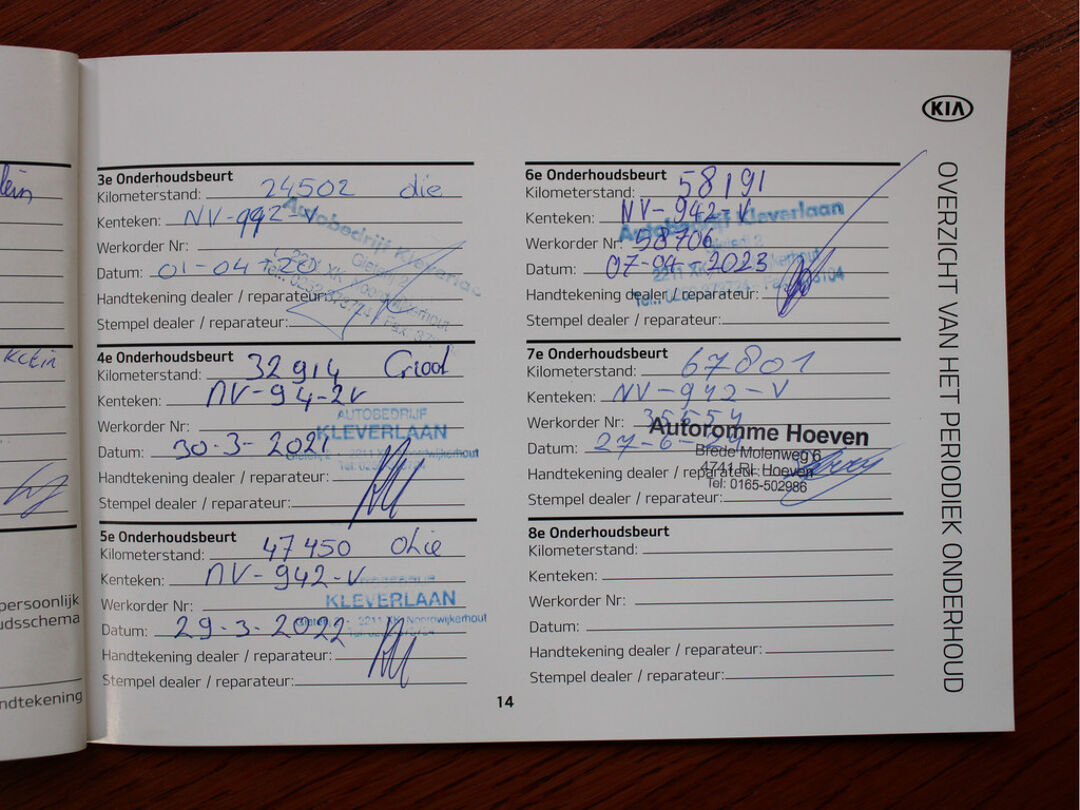 lein
persoonlijk
udsschema
ndtekening
3e Onderhoudsbeurt
Kilometerstand: 24502 olie
Kenteken: NV-992-V
Werkorder Nr:
Datum: 01-04-20
Autobedrijf Kleverlaan
2211 XK
Handtekening dealer / reparateur:
Stempel dealer / reparateur:
4e Onderhoudsbeurt
Kilometerstand: 32914 Groot
Kenteken: NV-94-2V
Werkorder Nr:
AUTOBEDRIJF
KLEVERLAAN
Datum: 30-3-2021
2211 XK Noordwijkerhout
Handtekening dealer / reparateur:
Stempel dealer / reparateur:
5e Onderhoudsbeurt
Kilometerstand: 47450 OLie
Kenteken: NV-942-V
Werkorder Nr:
KLEVERLAAN
2211 XK Noordwijkerhout
Datum: 29-3-2022
Handtekening dealer / reparateur:
Stempel dealer / reparateur:
6e Onderhoudsbeurt
Kilometerstand: 58191
Kenteken: NV-942-V
Autobedrijf Kleverlaan
Werkorder Nr: 58706
Datum: 07-04-2023
2211 XK
Handtekening dealer / reparateur:
Stempel dealer / reparateur:
7e Onderhoudsbeurt
Kilometerstand: 67801
Kenteken: NV-942-V
Werkorder Nr: 35554
Autoromme Hoeven
Datum: 27-6-24
Brede Molenweg 6
4741 RL Hoeven
Tel: 0165-502986
Handtekening dealer / reparateur:
Stempel dealer / reparateur:
8e Onderhoudsbeurt
Kilometerstand:
Kenteken:
Werkorder Nr:
Datum:
Handtekening dealer / reparateur:
Stempel dealer / reparateur:
14
KIA
OVERZICHT VAN HET PERIODIEK ONDERHOUD